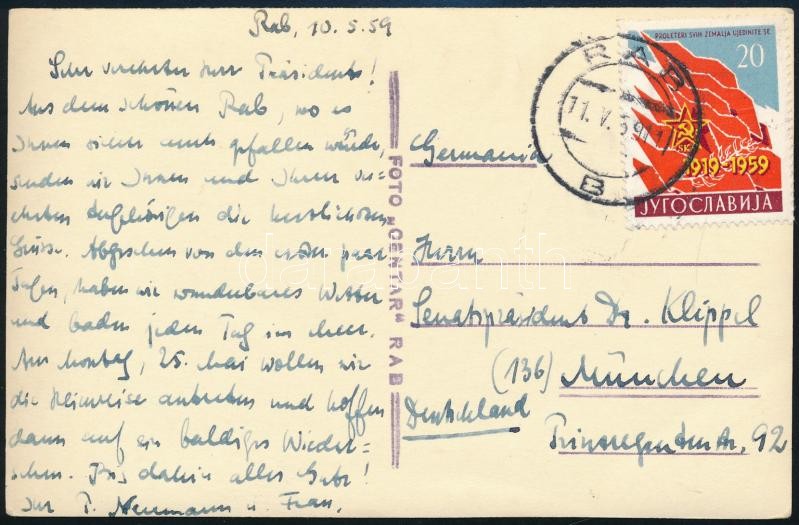 Rab, 10.5.59
Sehr verehrter Herr Präsident!
Aus dem schönen Rab, wo es
Ihnen sicher auch gefallen würde,
senden wir Ihnen und Ihren ver-
ehrten Angehörigen die herzlichsten
Grüsse. Abgesehen von den ersten paar
Tagen, haben wir wunderbares Wetter
und baden jeden Tag im Meer.
Am Montag, 25. Mai wollen wir
die Heimreise antreten und hoffen
dann auf ein baldiges Wieder-
sehen. Bis dahin alles Gute!
Ihr P. Neumann u. Frau.
FOTO „CENTAR" RAB
PROLETERI SVIH ZEMALJA UJEDINITE SE
20
SKJ
1919-1959
ЈУГОСЛАВИЈА
RAB
11.V.59
B
Germania
Herrn
Senatspräsident Dr. Klippel
(136) München
Deutschland
Prinzregentenstr. 92
darabanth